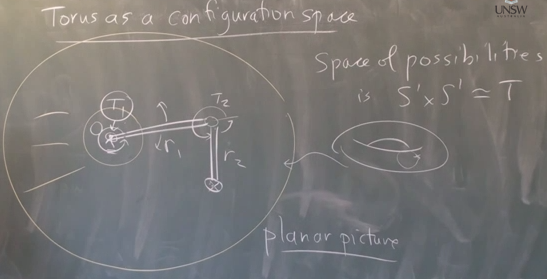 Torus as a configuration space
UNSW
AUSTRALIA
Space of possibilities
is S¹ x S¹ ≃ T
T₁
T₂
O
r₁
r₂
planar picture